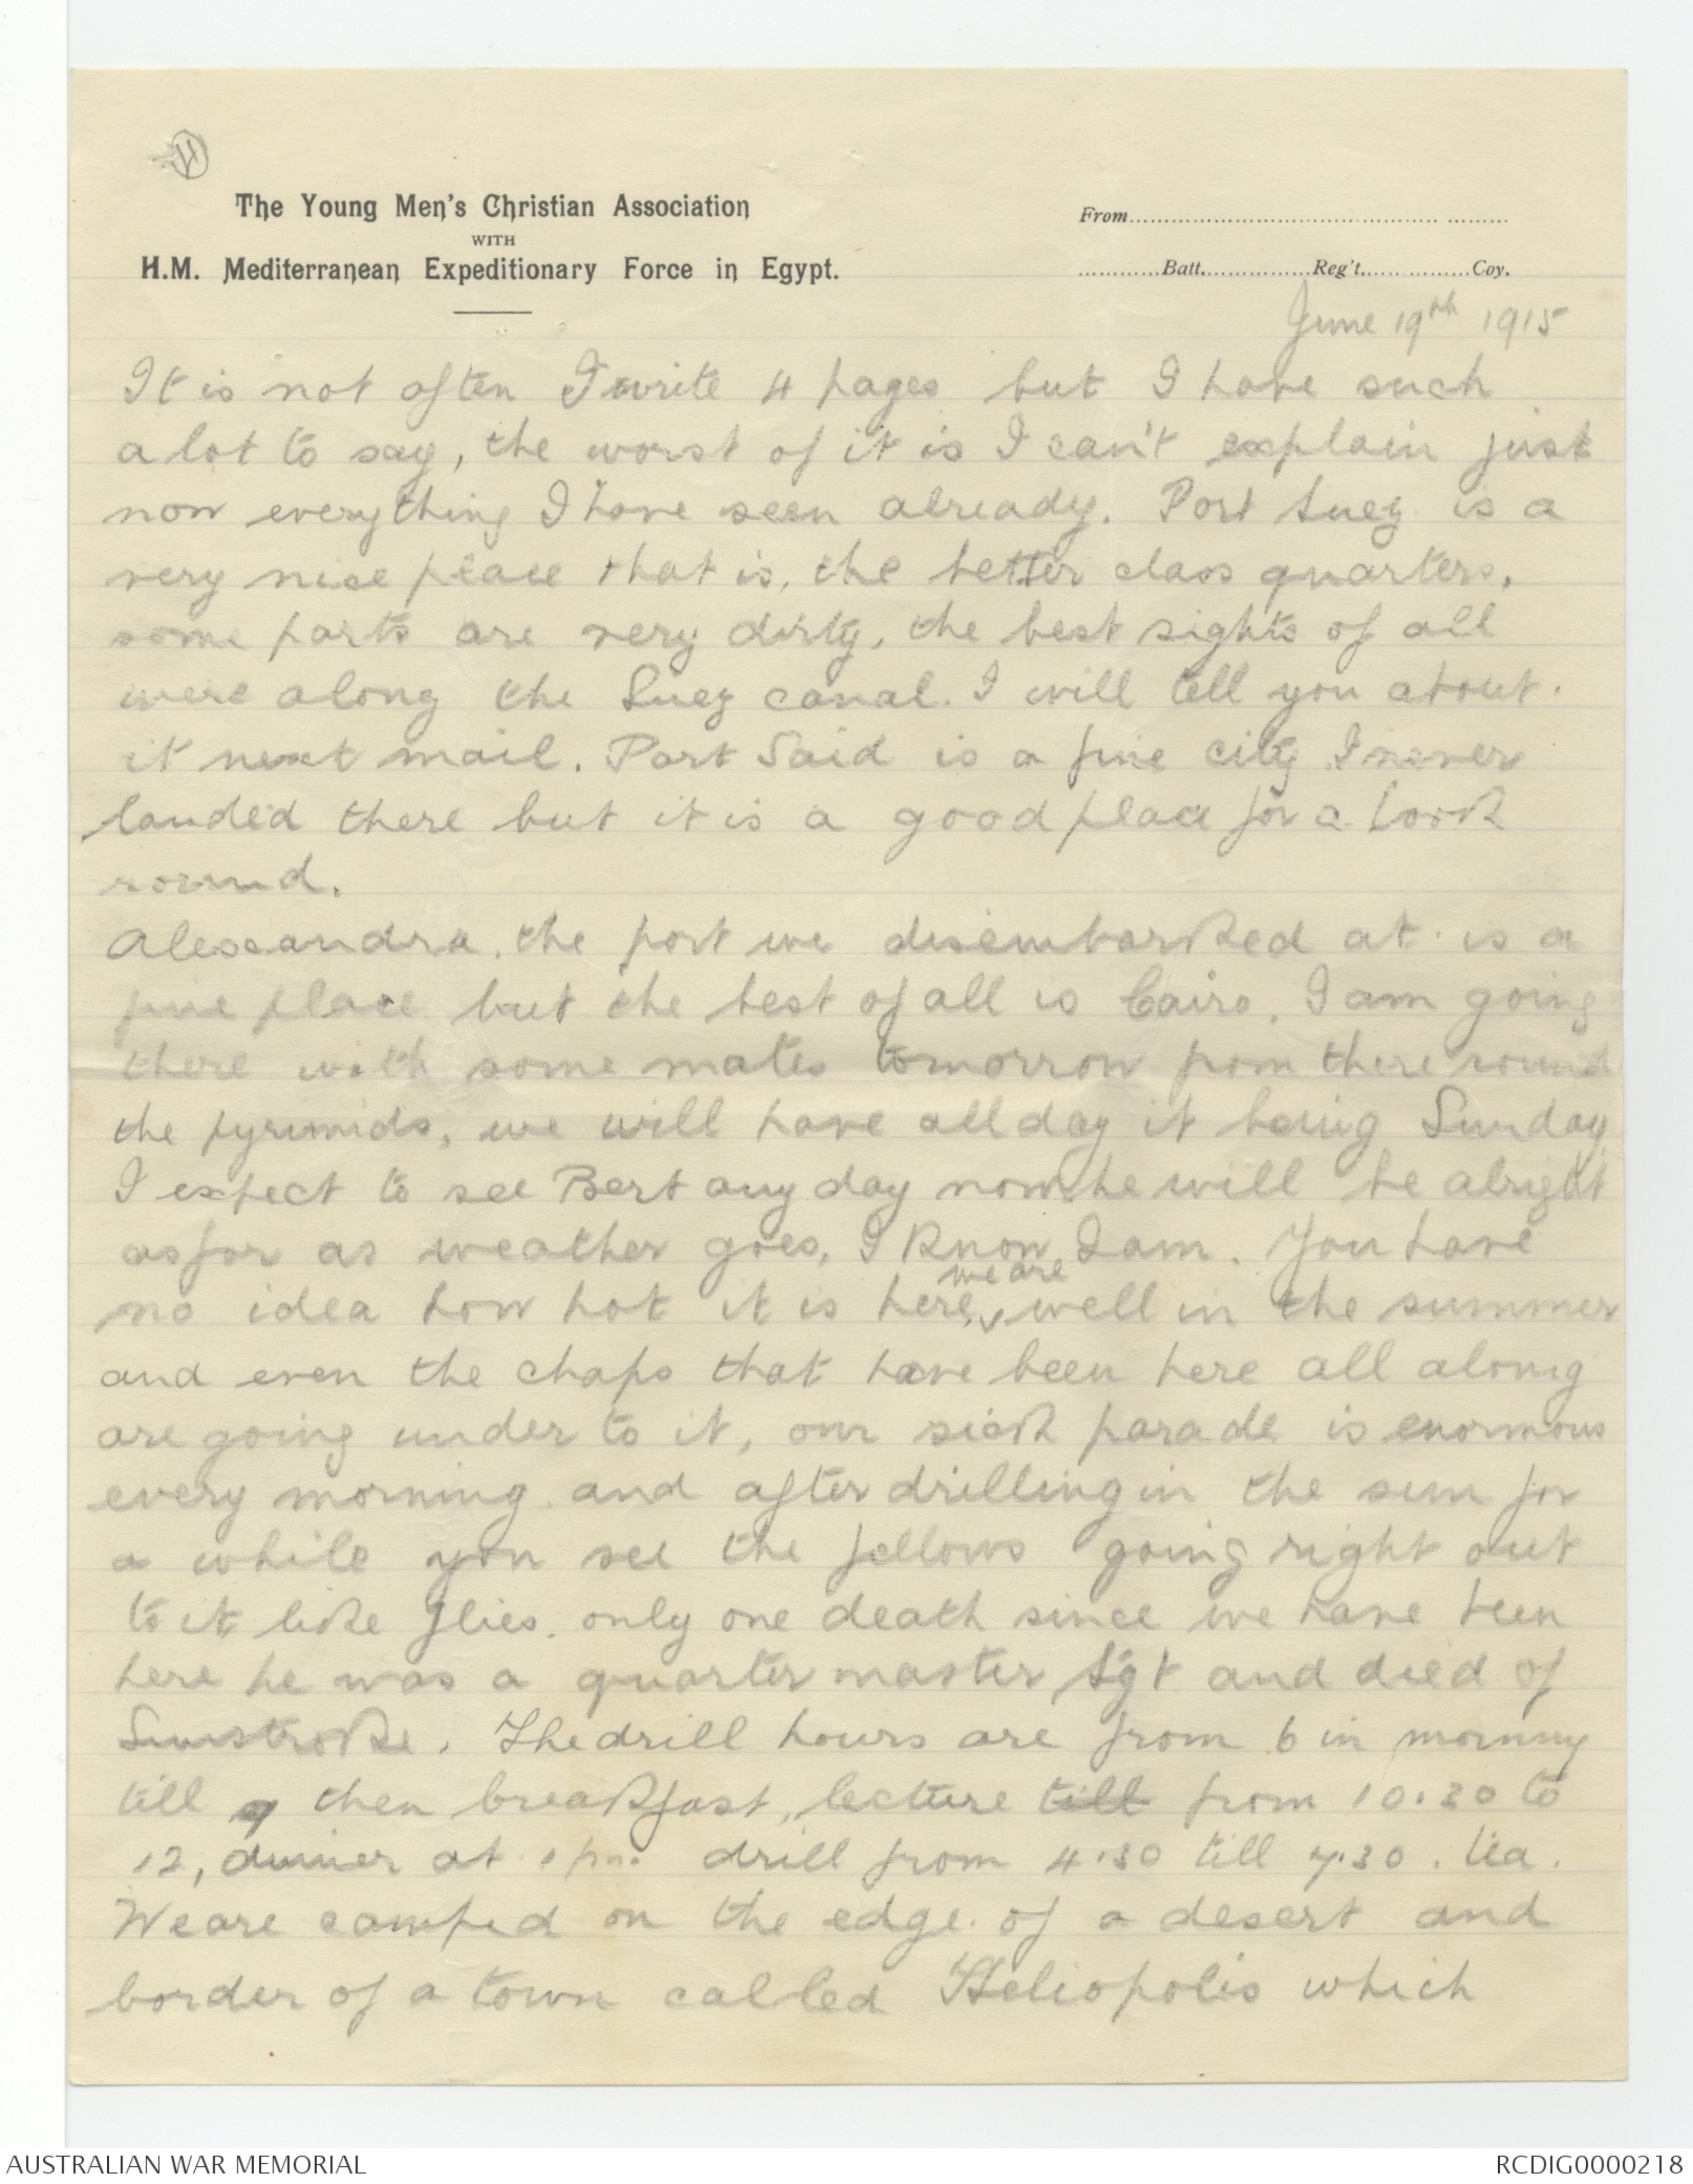 The Young Men's Christian Association
WITH
H.M. Mediterranean Expeditionary Force in Egypt.
From..............................................................
............Batt................Reg't................Coy.
June 19th 1915
It is not often I write 4 pages but I have such
a lot to say, the worst of it is I can't explain just
now everything I have seen already. Port Suez is a
very nice place that is, the better class quarters,
some parts are very dirty, the best sights of all
were along the Suez canal. I will tell you about
it next mail. Port Said is a fine city I never
landed there but it is a good place for a look
round.
Alexandra, the port we disembarked at is a
fine place but the best of all is Cairo. I am going
there with some mates tomorrow from there round
the pyrimids, we will have all day it being Sunday
I expect to see Bert any day now, he will be alright
as far as weather goes, I know I am. You have
no idea how hot it is here, we are well in the summer
and even the chaps that have been here all along
are going under to it, our sick parade is enormous
every morning and after drilling in the sun for
a while you see the fellows going right out
to it like flies, only one death since we have been
here he was a quarter master Sgt and died of
Sunstroke. The drill hours are from 6 in morning
till 9 then breakfast, lecture till from 10.30 to
12, dinner at 1 pm. drill from 4.30 till 7.30. tea.
We are camped on the edge of a desert and
border of a town called Heliopolis which
AUSTRALIAN WAR MEMORIAL
RCDIG0000218